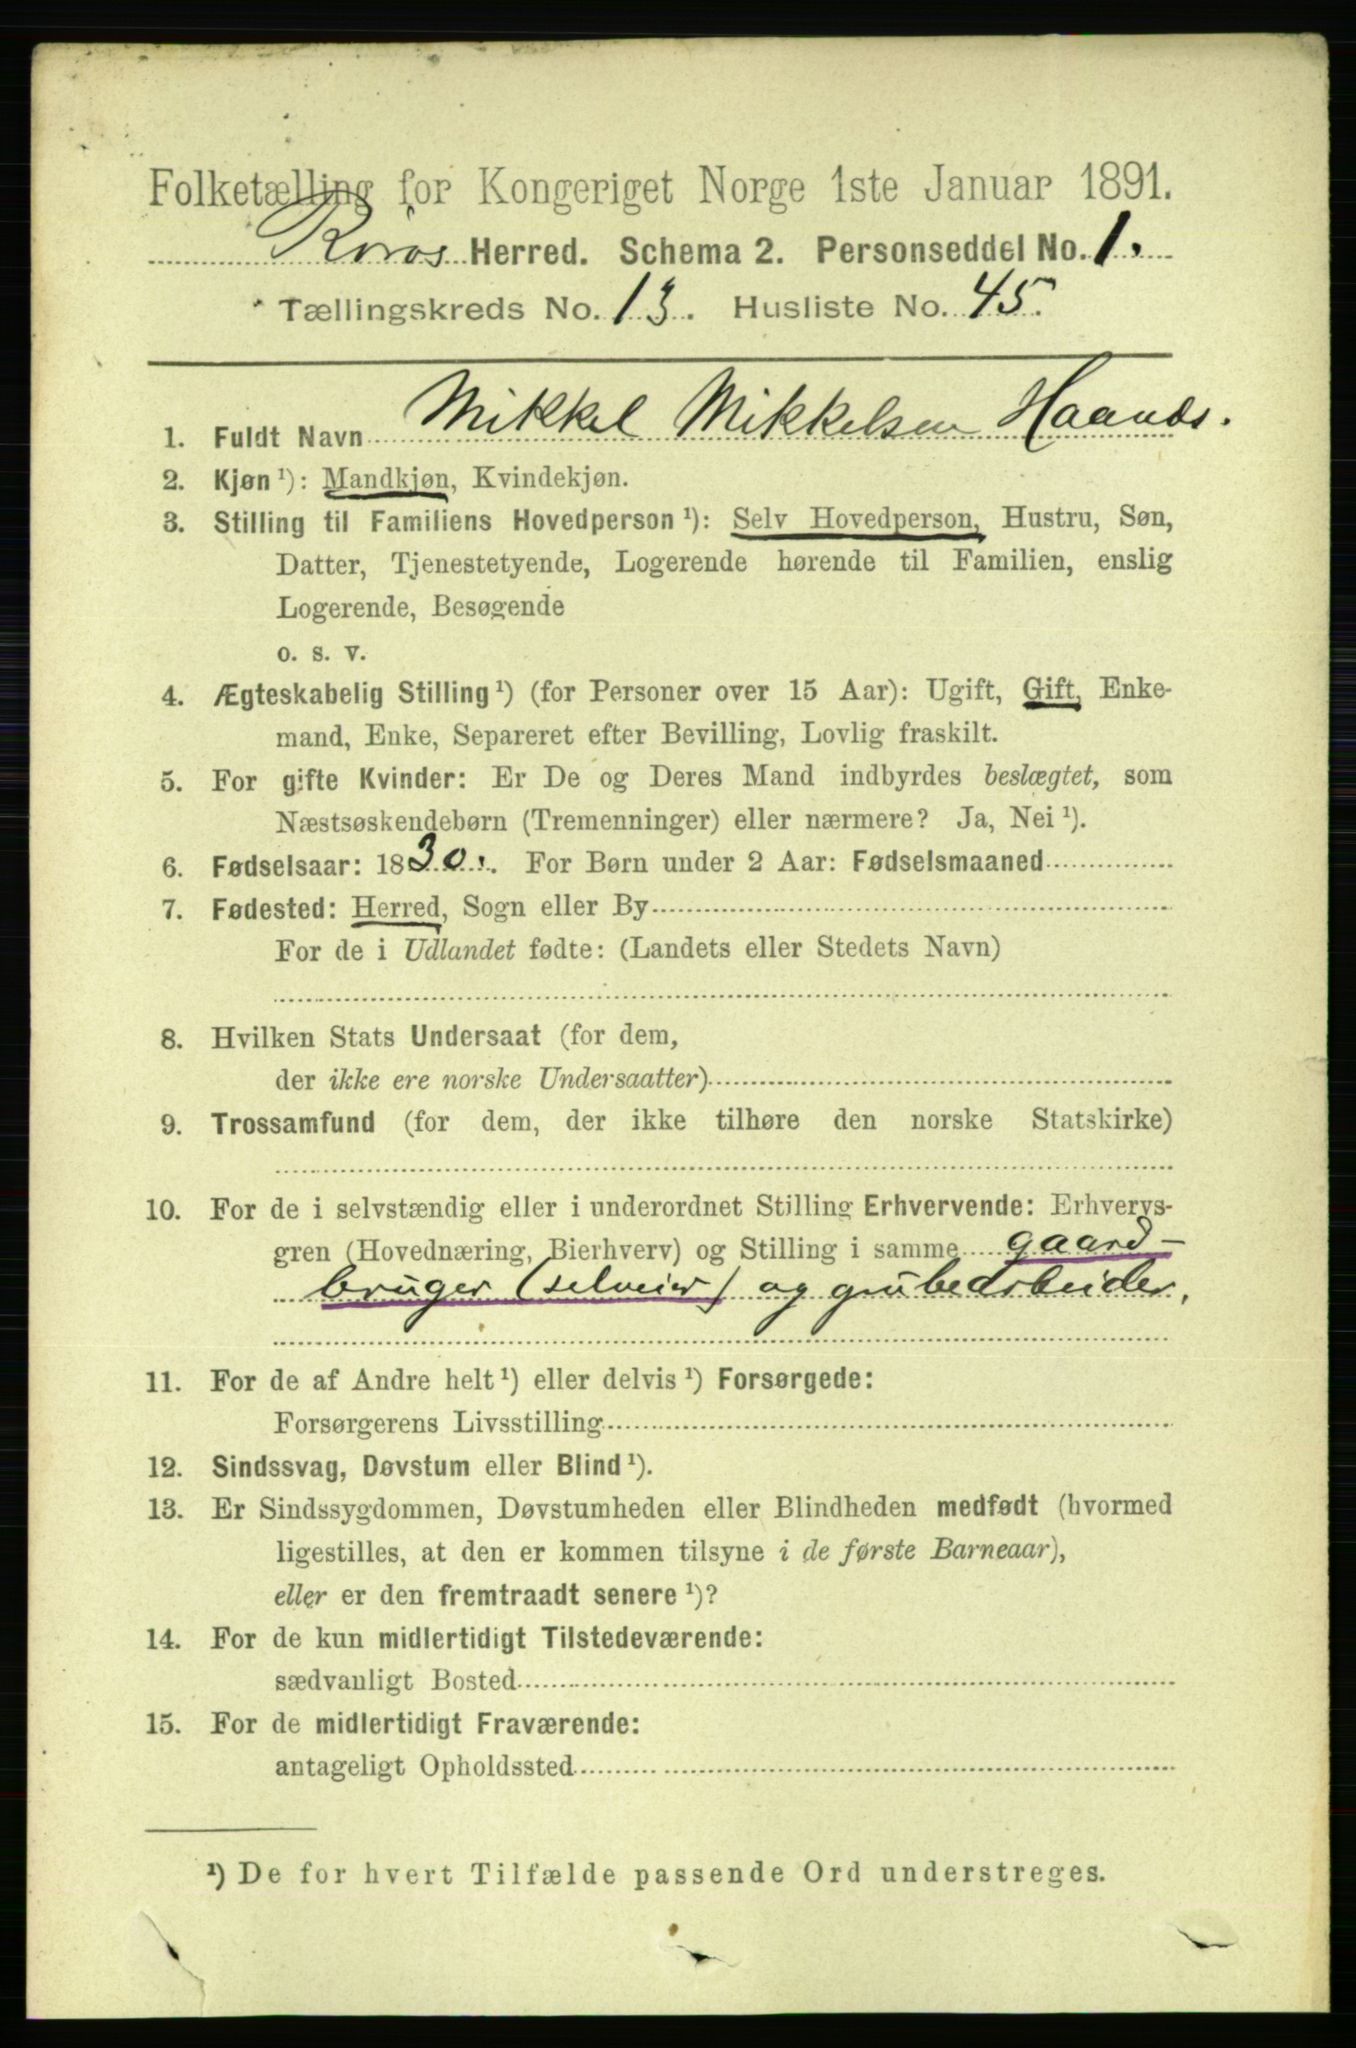 Folketælling for Kongeriget Norge 1ste Januar 1891.
Røros Herred. Schema 2. Personseddel No. 1.
Tællingskreds No. 13. Husliste No. 45.
1. Fuldt Navn Mikkel Mikkelsen Haanæs.
2. Kjøn ¹): Mandkjøn, Kvindekjøn.
3. Stilling til Familiens Hovedperson ¹): Selv Hovedperson, Hustru, Søn,
Datter, Tjenestetyende, Logerende hørende til Familien, enslig
Logerende, Besøgende
o. s. v.
4. Ægteskabelig Stilling ¹) (for Personer over 15 Aar): Ugift, Gift, Enke-
mand, Enke, Separeret efter Bevilling, Lovlig fraskilt.
5. For gifte Kvinder: Er De og Deres Mand indbyrdes beslægtet, som
Næstsøskendebørn (Tremenninger) eller nærmere? Ja, Nei ¹).
6. Fødselsaar: 1830. For Børn under 2 Aar: Fødselsmaaned
7. Fødested: Herred, Sogn eller By
For de i Udlandet fødte: (Landets eller Stedets Navn)
8. Hvilken Stats Undersaat (for dem,
der ikke ere norske Undersaatter)
9. Trossamfund (for dem, der ikke tilhøre den norske Statskirke)
10. For de i selvstændig eller i underordnet Stilling Erhvervende: Erhvervs-
gren (Hovednæring, Bierhverv) og Stilling i samme gaard-
bruger (selveier) og grubearbeider.
11. For de af Andre helt ¹) eller delvis ¹) Forsørgede:
Forsørgerens Livsstilling
12. Sindssvag, Døvstum eller Blind ¹).
13. Er Sindssygdommen, Døvstumheden eller Blindheden medfødt (hvormed
ligestilles, at den er kommen tilsyne i de første Barneaar),
eller er den fremtraadt senere ¹)?
14. For de kun midlertidigt Tilstedeværende:
sædvanligt Bosted
15. For de midlertidigt Fraværende:
antageligt Opholdssted
¹) De for hvert Tilfælde passende Ord understreges.